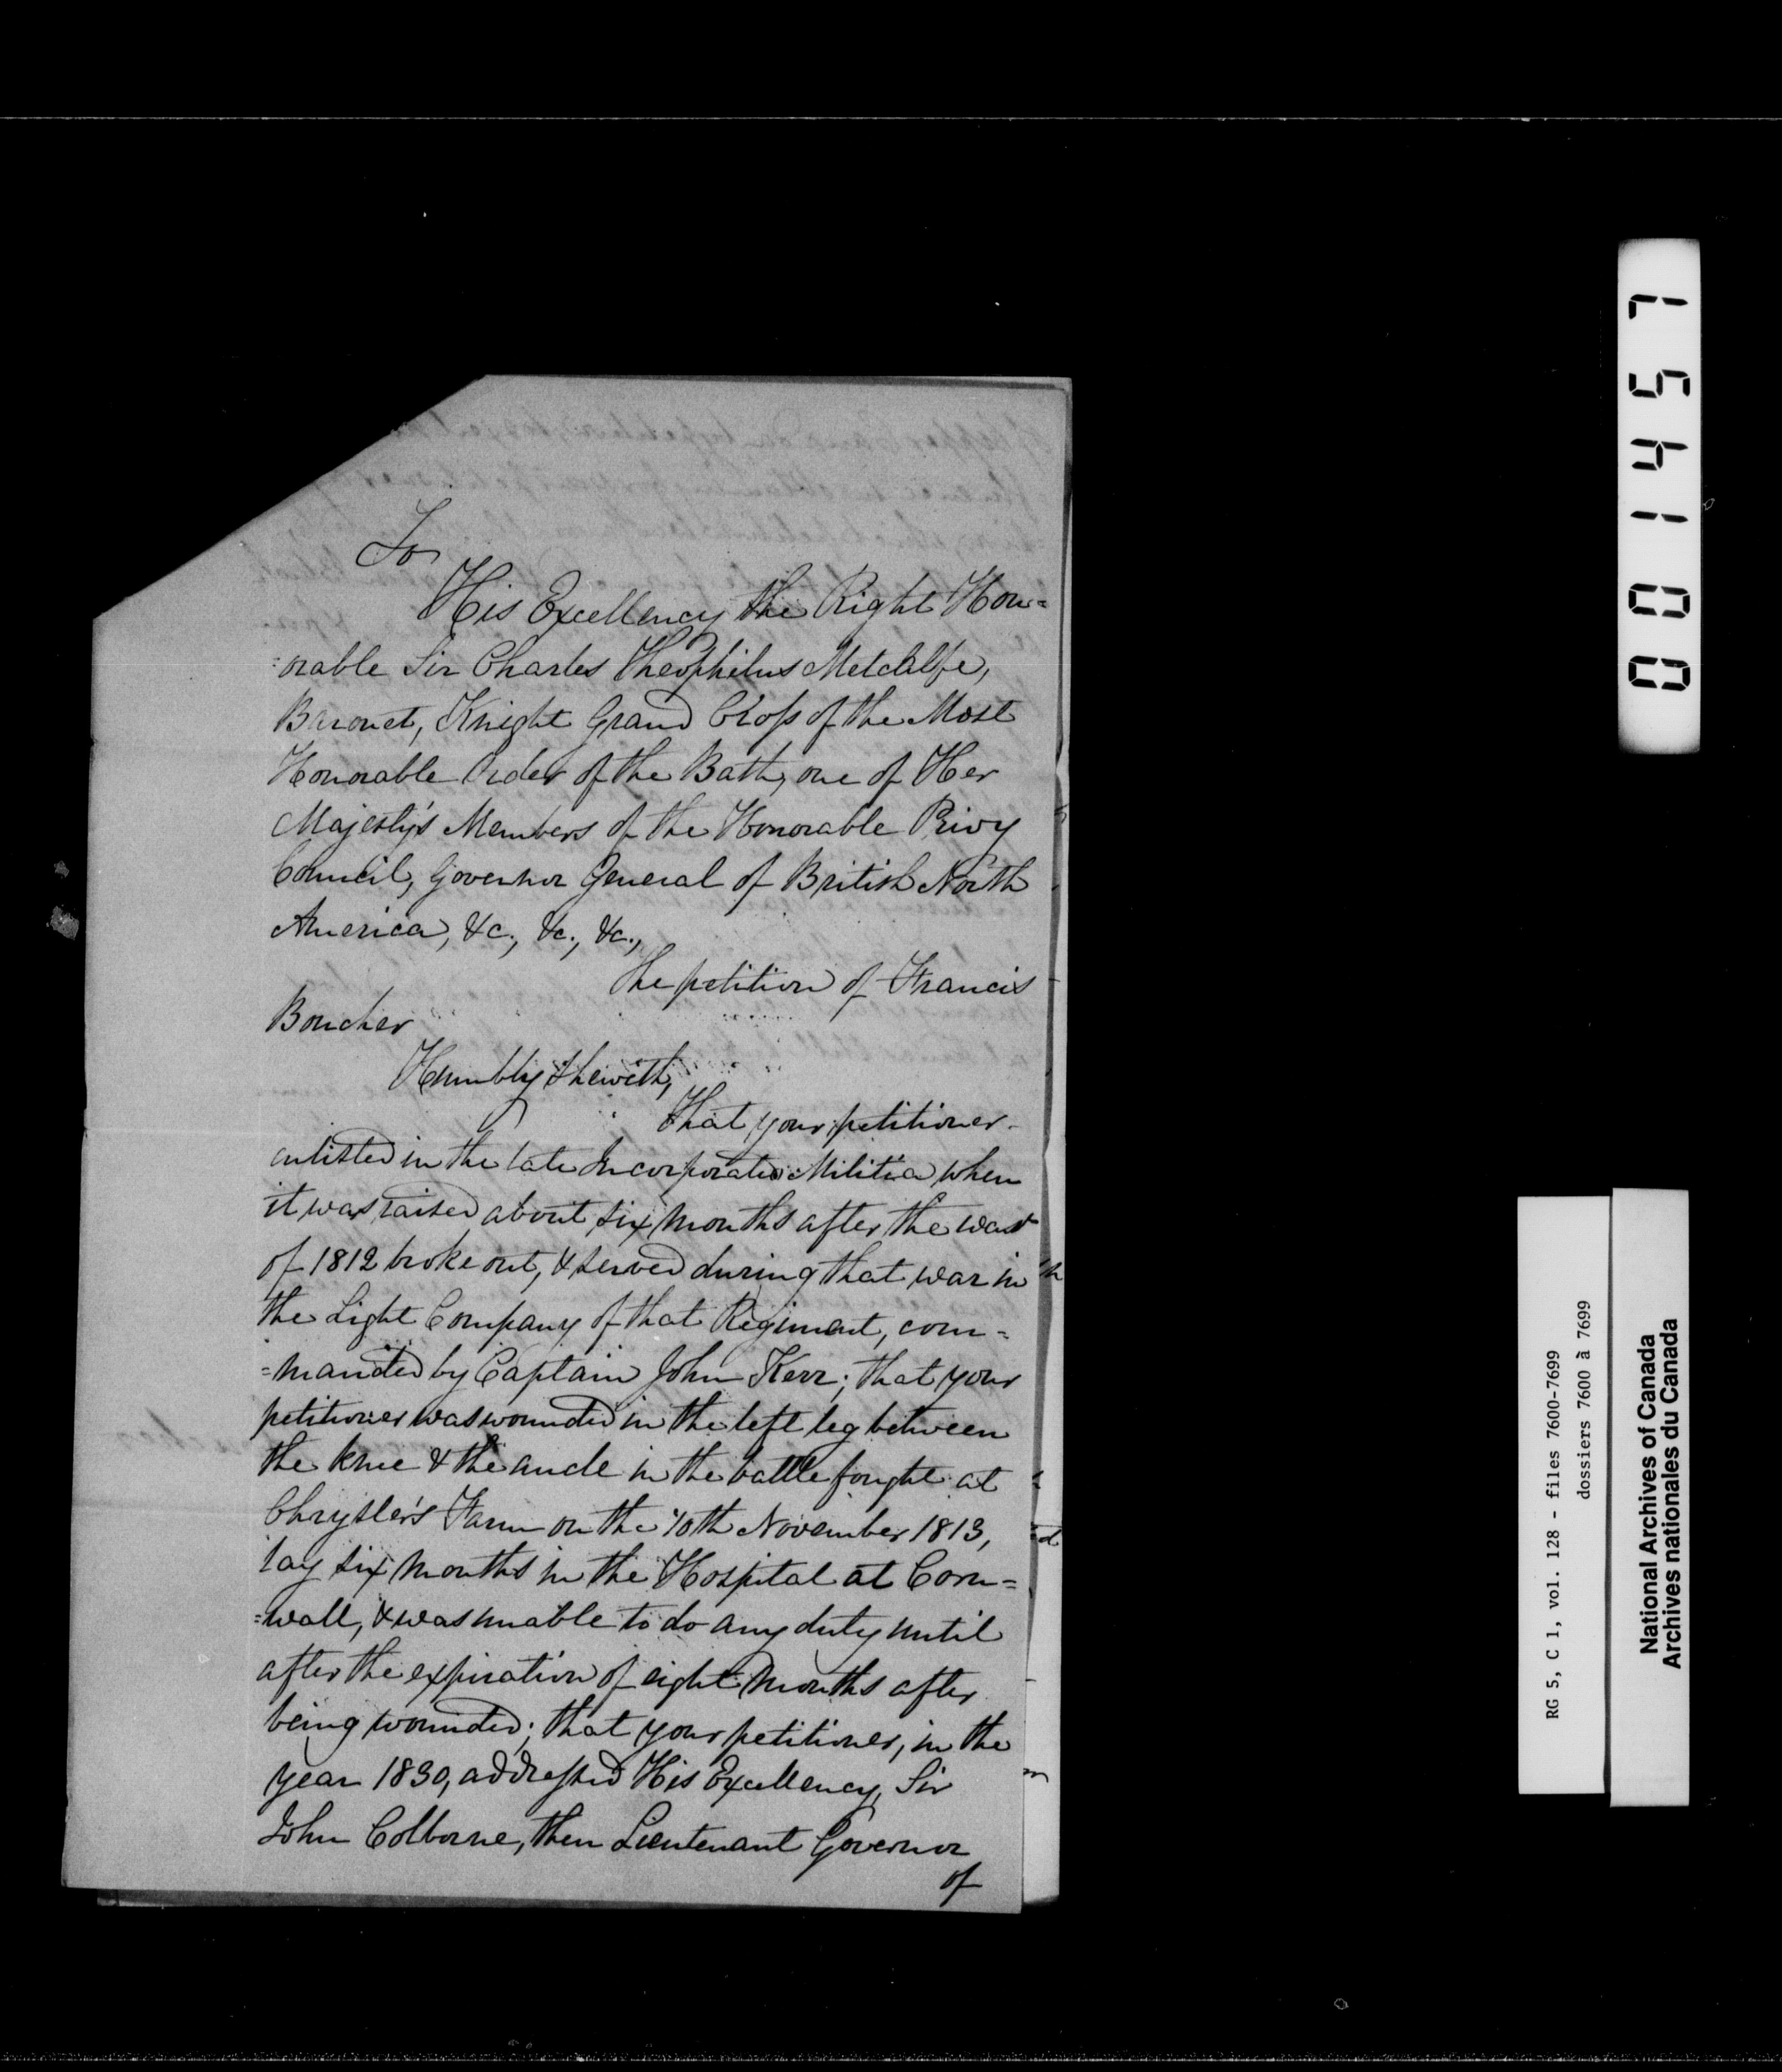 To
His Excellency the Right Hon=
=orable Sir Charles Theophilus Metcalfe,
Baronet, Knight Grand Cross of the Most
Honorable Order of the Bath, one of Her
Majesty's Members of the Honorable Privy
Council, Governor General of British North
America, &c., &c., &c.,
The petition of Francis
Boucher
Humbly Sheweth,
That your petitioner
enlisted in the late Incorporated Militia when
it was raised about six months after the war
of 1812 broke out, & served during that war in
the Light Company of that Regiment, com=
=manded by Captain John Kerr; that your
petitioner was wounded in the left leg between
the knee & the ancle in the battle fought at
Chrysler's Farm on the 10th November 1813,
lay six months in the Hospital at Corn=
=wall, & was unable to do any duty until
after the expiration of eight months after
being wounded; that your petitioner, in the
year 1830, addressed His Excellency, Sir
John Colborne, then Lieutenant Governor
of
001457
RG 5, C 1, vol. 128 - files 7600-7699
dossiers 7600 à 7699
National Archives of Canada
Archives nationales du Canada